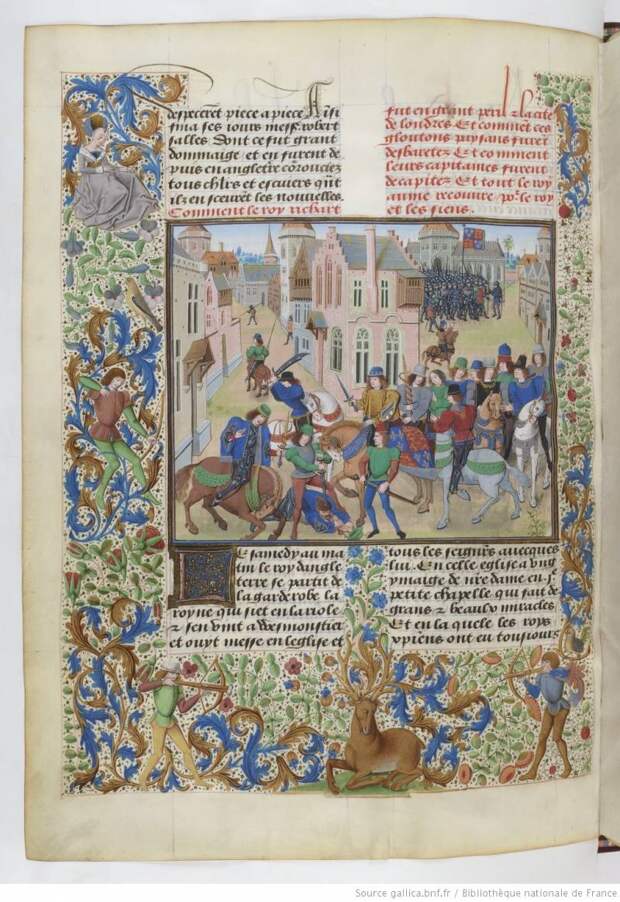 despecerēt piece a piece Ainsi
fina ses iours messe robert
salles Dont ce fut grant
dommaige et en furent de
puis en angletre cōrouciez
tous chlrs et escuiers qūt
ilz en sceurēt les nouvelles.
Comment le roy richart
fut en grant peril z la cite
de londres Et commēt ces
gloutons paysans furēt
desbaretez Et comment
leurs capitaines furent
decapitez Et tout le roy
aume recouvre po le roy
et les siens
Le samedy au ma
tin le roy dangle
terre se partit de
la garderobe la
royne qui siet en la riole
z sen vint a Wesmonstier
et ouyt messe en leglise et
tous les seignrs avecques
lui En celle eglise a ung
ymaige de nre dame en Je
petite chapelle qui fait de
grans z beaulx miracles
Et en la quele les roys
xpriens ont eu tousiours
Source gallica.bnf.fr / Bibliothèque nationale de France